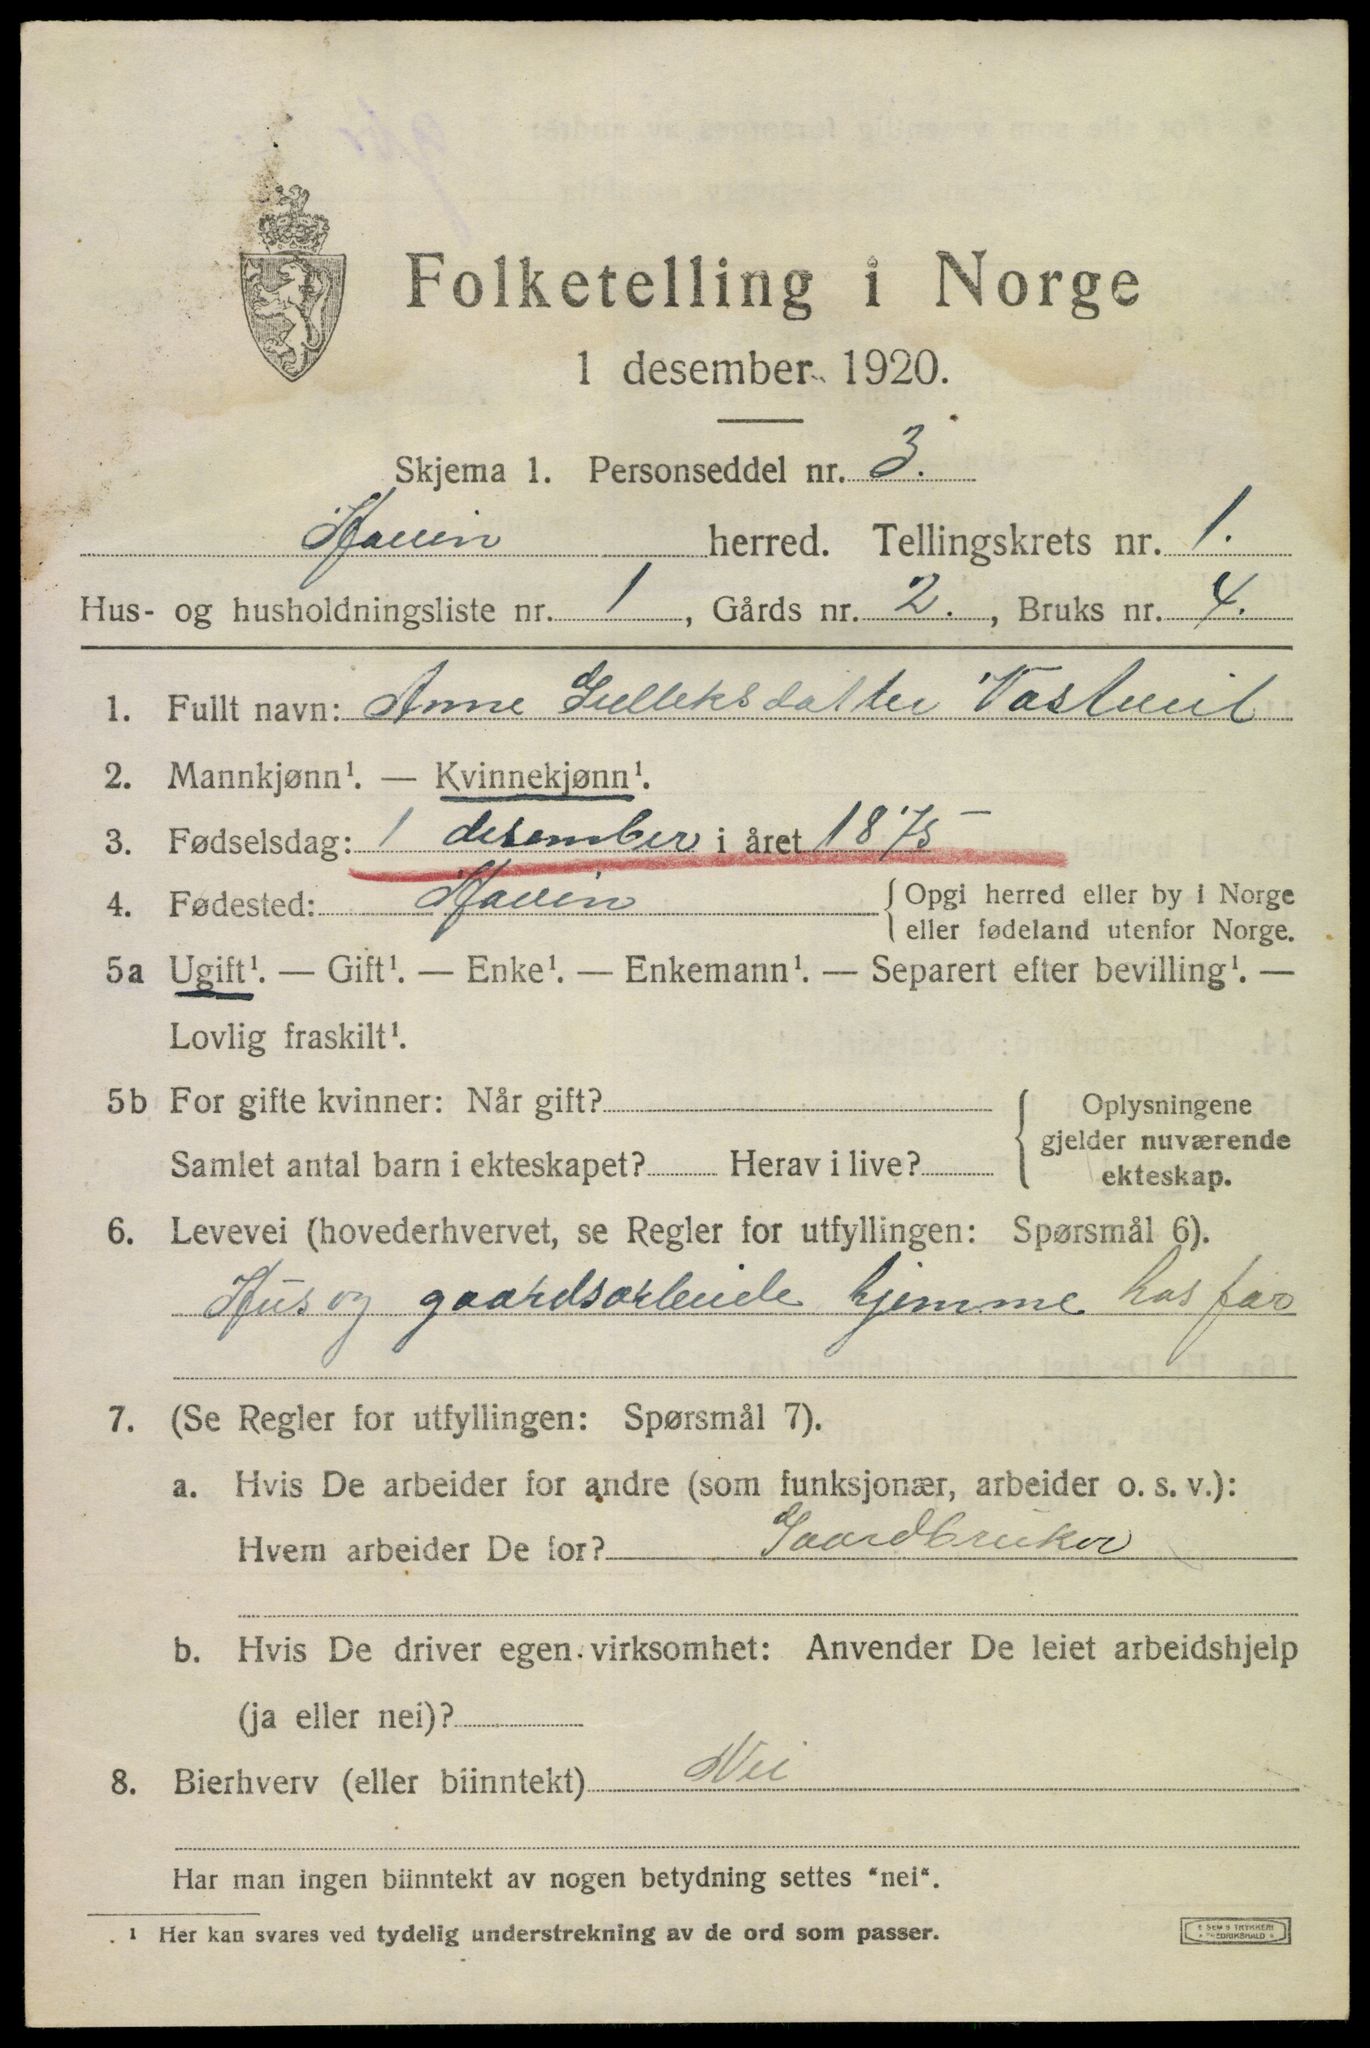 Folketelling i Norge
1 desember 1920.
Skjema 1. Personseddel nr. 3.
Hauin herred. Tellingskrets nr. 1.
Hus- og husholdningsliste nr. 1, Gårds nr. 2., Bruks nr. 4.
1. Fullt navn: Anne Gulleksdatter Vastveit
2. Mannkjønn¹. — Kvinnekjønn¹.
3. Fødselsdag: 1 desember i året 1875
4. Fødested: Hauin { Opgi herred eller by i Norge
eller fødeland utenfor Norge.
5a Ugift¹. — Gift¹. — Enke¹. — Enkemann¹. — Separert efter bevilling¹. —
Lovlig fraskilt¹.
5b For gifte kvinner: Når gift?
Samlet antal barn i ekteskapet? Herav i live?
{ Oplysningene
gjelder nuværende
ekteskap.
6. Levevei (hovederhvervet, se Regler for utfyllingen: Spørsmål 6).
Hus og gaardsarbeide hjemme hos far
7. (Se Regler for utfyllingen: Spørsmål 7).
a. Hvis De arbeider for andre (som funksjonær, arbeider o. s. v.):
Hvem arbeider De for? Gaardbruker
b. Hvis De driver egen virksomhet: Anvender De leiet arbeidshjelp
(ja eller nei)?
8. Bierhverv (eller biinntekt) Nei
Har man ingen biinntekt av nogen betydning settes "nei".
¹ Her kan svares ved tydelig understrekning av de ord som passer.
E SEM'S TRYKKERI
FREDRIKSHALD